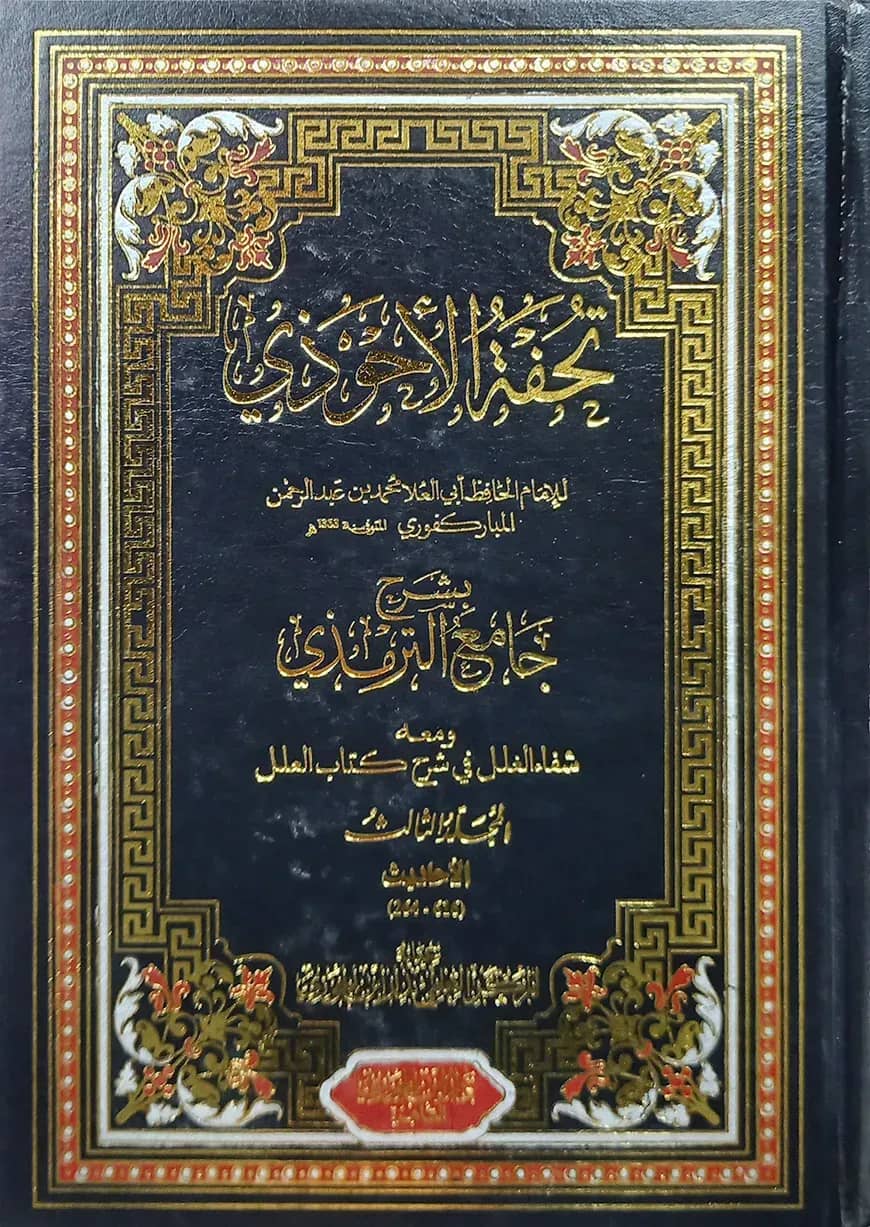 تُحْفَةُ الأَحْوَذِي
للإمام الحافظ أبي العلا محمد بن عبد الرحمن
المباركفوري المتوفى سنة 1353 هـ
بشرح
جامع الترمذي
ومعه
شفاء الغلل في شرح كتاب العلل
المجلد الثالث
الأحاديث